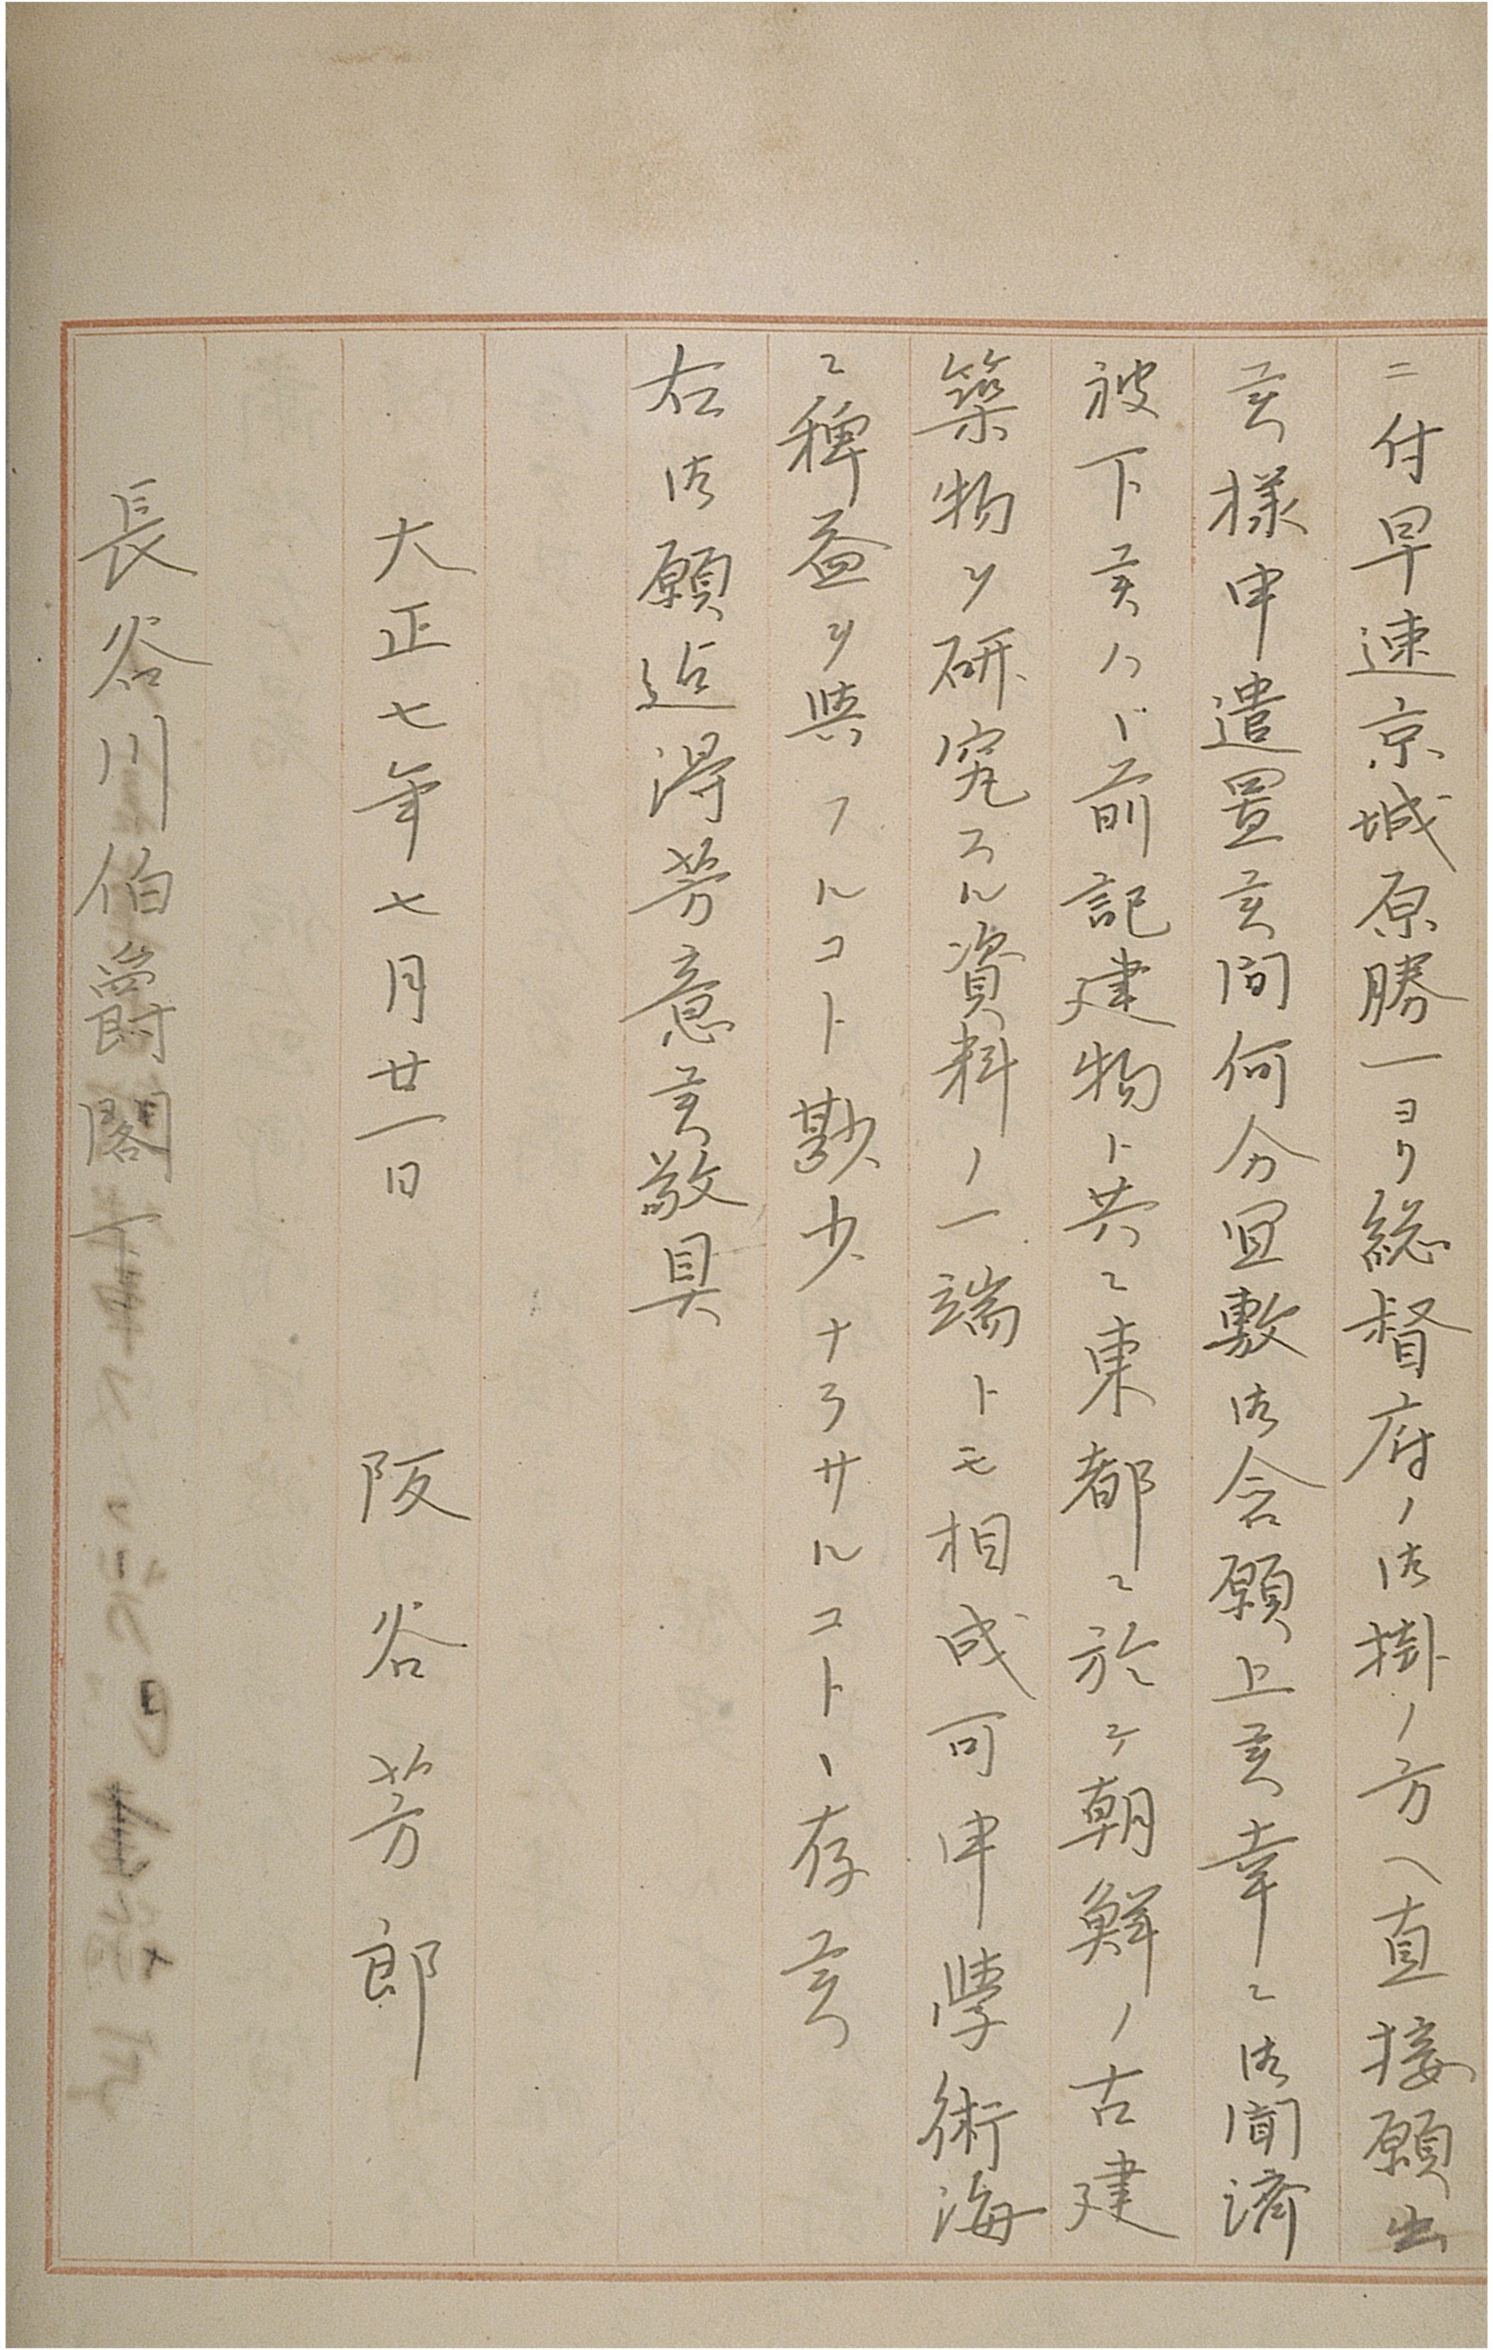 ニ付早速京城原勝一ヨリ総督府ノ御掛ノ方ヘ直接願出
候様申遣置候間何分宜敷御含願上候幸ニ御聞済
被下候ハヾ前記建物ト共ニ東都ニ於ケ朝鮮ノ古建
築物ヲ研究スル資料ノ一端トモ相成可申學術海
ニ稗益ヲ與フルコト尠少ナラサルコトヽ存候
右御願迠得芳意候敬具
大正七年七月廿一日 阪谷芳郎
長谷川伯爵閣下